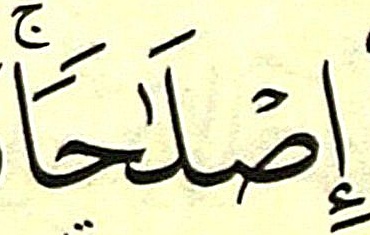 إِصْلَٰحًاۚ